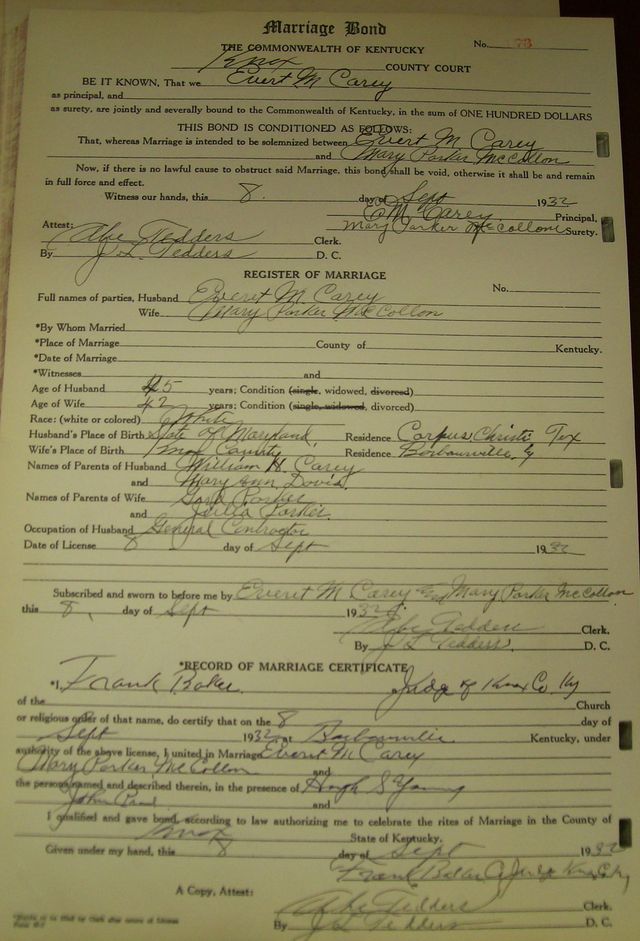 Marriage Bond
THE COMMONWEALTH OF KENTUCKY No. 78
Knox COUNTY COURT
BE IT KNOWN, That we Evert M Carey
as principal, and
as surety, are jointly and severally bound to the Commonwealth of Kentucky, in the sum of ONE HUNDRED DOLLARS
THIS BOND IS CONDITIONED AS FOLLOWS:
That, whereas Marriage is intended to be solemnized between Evert M. Carey
and Mary Parker McCollon
Now, if there is no lawful cause to obstruct said Marriage, this bond shall be void, otherwise it shall be and remain
in full force and effect.
Witness our hands, this 8. day of Sept 1932
E M. Carey Principal,
Mary Parker McCollom Surety.
Attest:
Abe Tedders Clerk.
By J L Tedders D. C.
REGISTER OF MARRIAGE
No.
Full names of parties, Husband Everet M. Carey
Wife Mary Parker McCollon
*By Whom Married
*Place of Marriage County of Kentucky.
*Date of Marriage
*Witnesses and
Age of Husband 45 years; Condition (single, widowed, divorced)
Age of Wife 42 years; Condition (single, widowed, divorced)
Race: (white or colored) White
Husband's Place of Birth State of Maryland Residence Corpus Christi Tex
Wife's Place of Birth Knox County Residence Barbourville, Ky
Names of Parents of Husband William H. Carey
and Mary Ann Davis
Names of Parents of Wife Parker
and Julia Parker
Occupation of Husband General Contractor
Date of License 8 day of Sept 1932
Subscribed and sworn to before me by Everet M Carey and Mary Parker McCollon
this 8, day of Sept 1932
Abe Tedders Clerk.
By J L Tedders D. C.
*RECORD OF MARRIAGE CERTIFICATE
*I, Frank Baker Judge of Knox Co Ky
of the Church
or religious order of that name, do certify that on the 8 day of
Sept 1932 at Barbourville Kentucky, under
authority of the above license, I united in Marriage Everet M Carey
Mary Parker McCollon and
the persons named and described therein, in the presence of Hugh S Young
John and
I qualified and gave bond, according to law authorizing me to celebrate the rites of Marriage in the County of
Knox State of Kentucky.
Given under my hand, this 8 day of Sept 1932
Frank Baker Judge Knox Co, Ky
A Copy, Attest:
Abe Tedders Clerk.
By J L Tedders D. C.